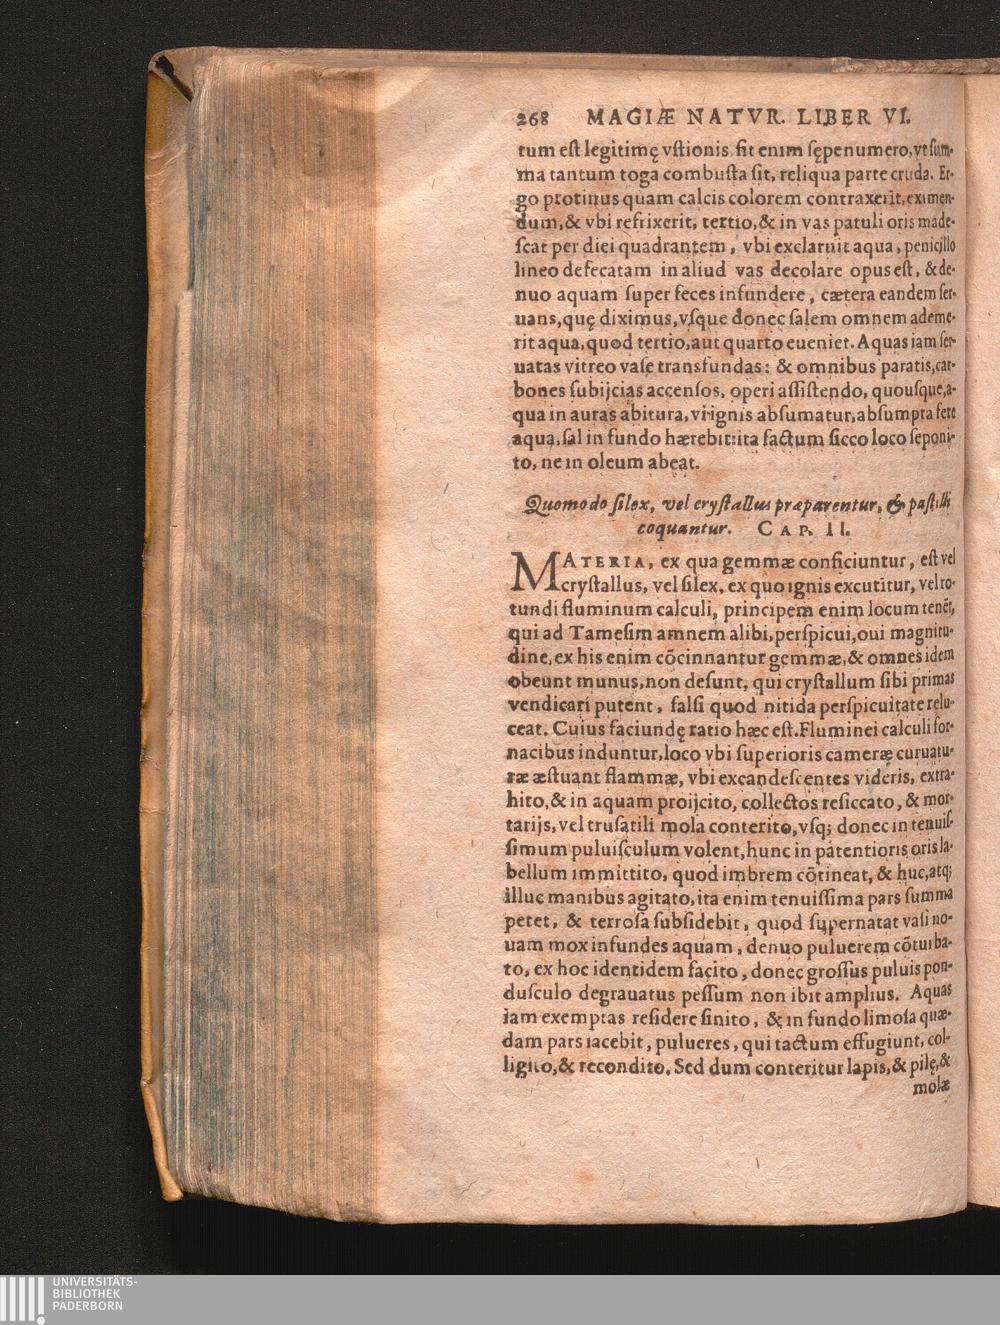 268 MAGIÆ NATVR. LIBER VI.
tum eſt legitimę vſtionis, fit enim ſępenumero, vt ſum-
ma tantum toga combuſta ſit, reliqua parte cruda. Er-
go protinus quam calcis colorem contraxerit, eximen-
dum, & vbi refrixerit, tertio, & in vas patuli oris made-
ſcat per diei quadrantem, vbi exclaruit aqua, penicillo
lineo defecatam in aliud vas decolare opus eſt, & de-
nuo aquam ſuper feces infundere, cætera eandem ſer-
uans, quę diximus, vſque donec ſalem omnem ademe-
rit aqua, quod tertio, aut quarto eueniet. Aquas iam ſer-
uatas vitreo vaſe transfundas: & omnibus paratis, car-
bones ſubijcias accenſos, operi aſſiſtendo, quouſque, a-
qua in auras abitura, vi ignis abſumatur, abſumpta fere
aqua, ſal in fundo hærebit: ita factum ſicco loco ſeponi-
to, ne in oleum abeat.
Quomodo ſilex, vel cryſtallus præparentur, & paſtilli
coquantur. CAP. II.
MATERIA, ex qua gemmæ conficiuntur, eſt vel
cryſtallus, vel ſilex, ex quo ignis excutitur, vel ro-
tundi fluminum calculi, principem enim locum tenēt,
qui ad Tameſim amnem alibi, perſpicui, oui magnitu-
dine, ex his enim cōcinnantur gemmæ, & omnes idem
obeunt munus, non deſunt, qui cryſtallum ſibi primas
vendicari putent, falſi quod nitida perſpicuitate relu-
ceat. Cuius faciundę ratio hæc eſt. Fluminei calculi for-
nacibus induntur, loco vbi ſuperioris cameræ curuatu-
ræ æſtuant flammæ, vbi excandeſcentes videris, extra-
hito, & in aquam proijcito, collectos reſiccato, & mor-
tarijs, vel truſatili mola conterito, vſq; donec in tenuiſ-
ſimum puluiſculum volent, hunc in patentioris oris la-
bellum immittito, quod imbrem cōtineat, & huc, atq;
illuc manibus agitato, ita enim tenuiſſima pars ſumma
petet, & terroſa ſubſidebit, quod ſupernatat vaſi no-
uam mox infundes aquam, denuo puluerem cōturba-
to, ex hoc identidem facito, donec groſſus puluis pon-
duſculo degrauatus peſſum non ibit amplius. Aquas
iam exemptas reſidere ſinito, & in fundo limoſa quæ-
dam pars iacebit, pulueres, qui tactum effugiunt, col-
ligito, & recondito. Sed dum conteritur lapis, & pilę, &
molæ
UNIVERSITÄTS-
BIBLIOTHEK
PADERBORN